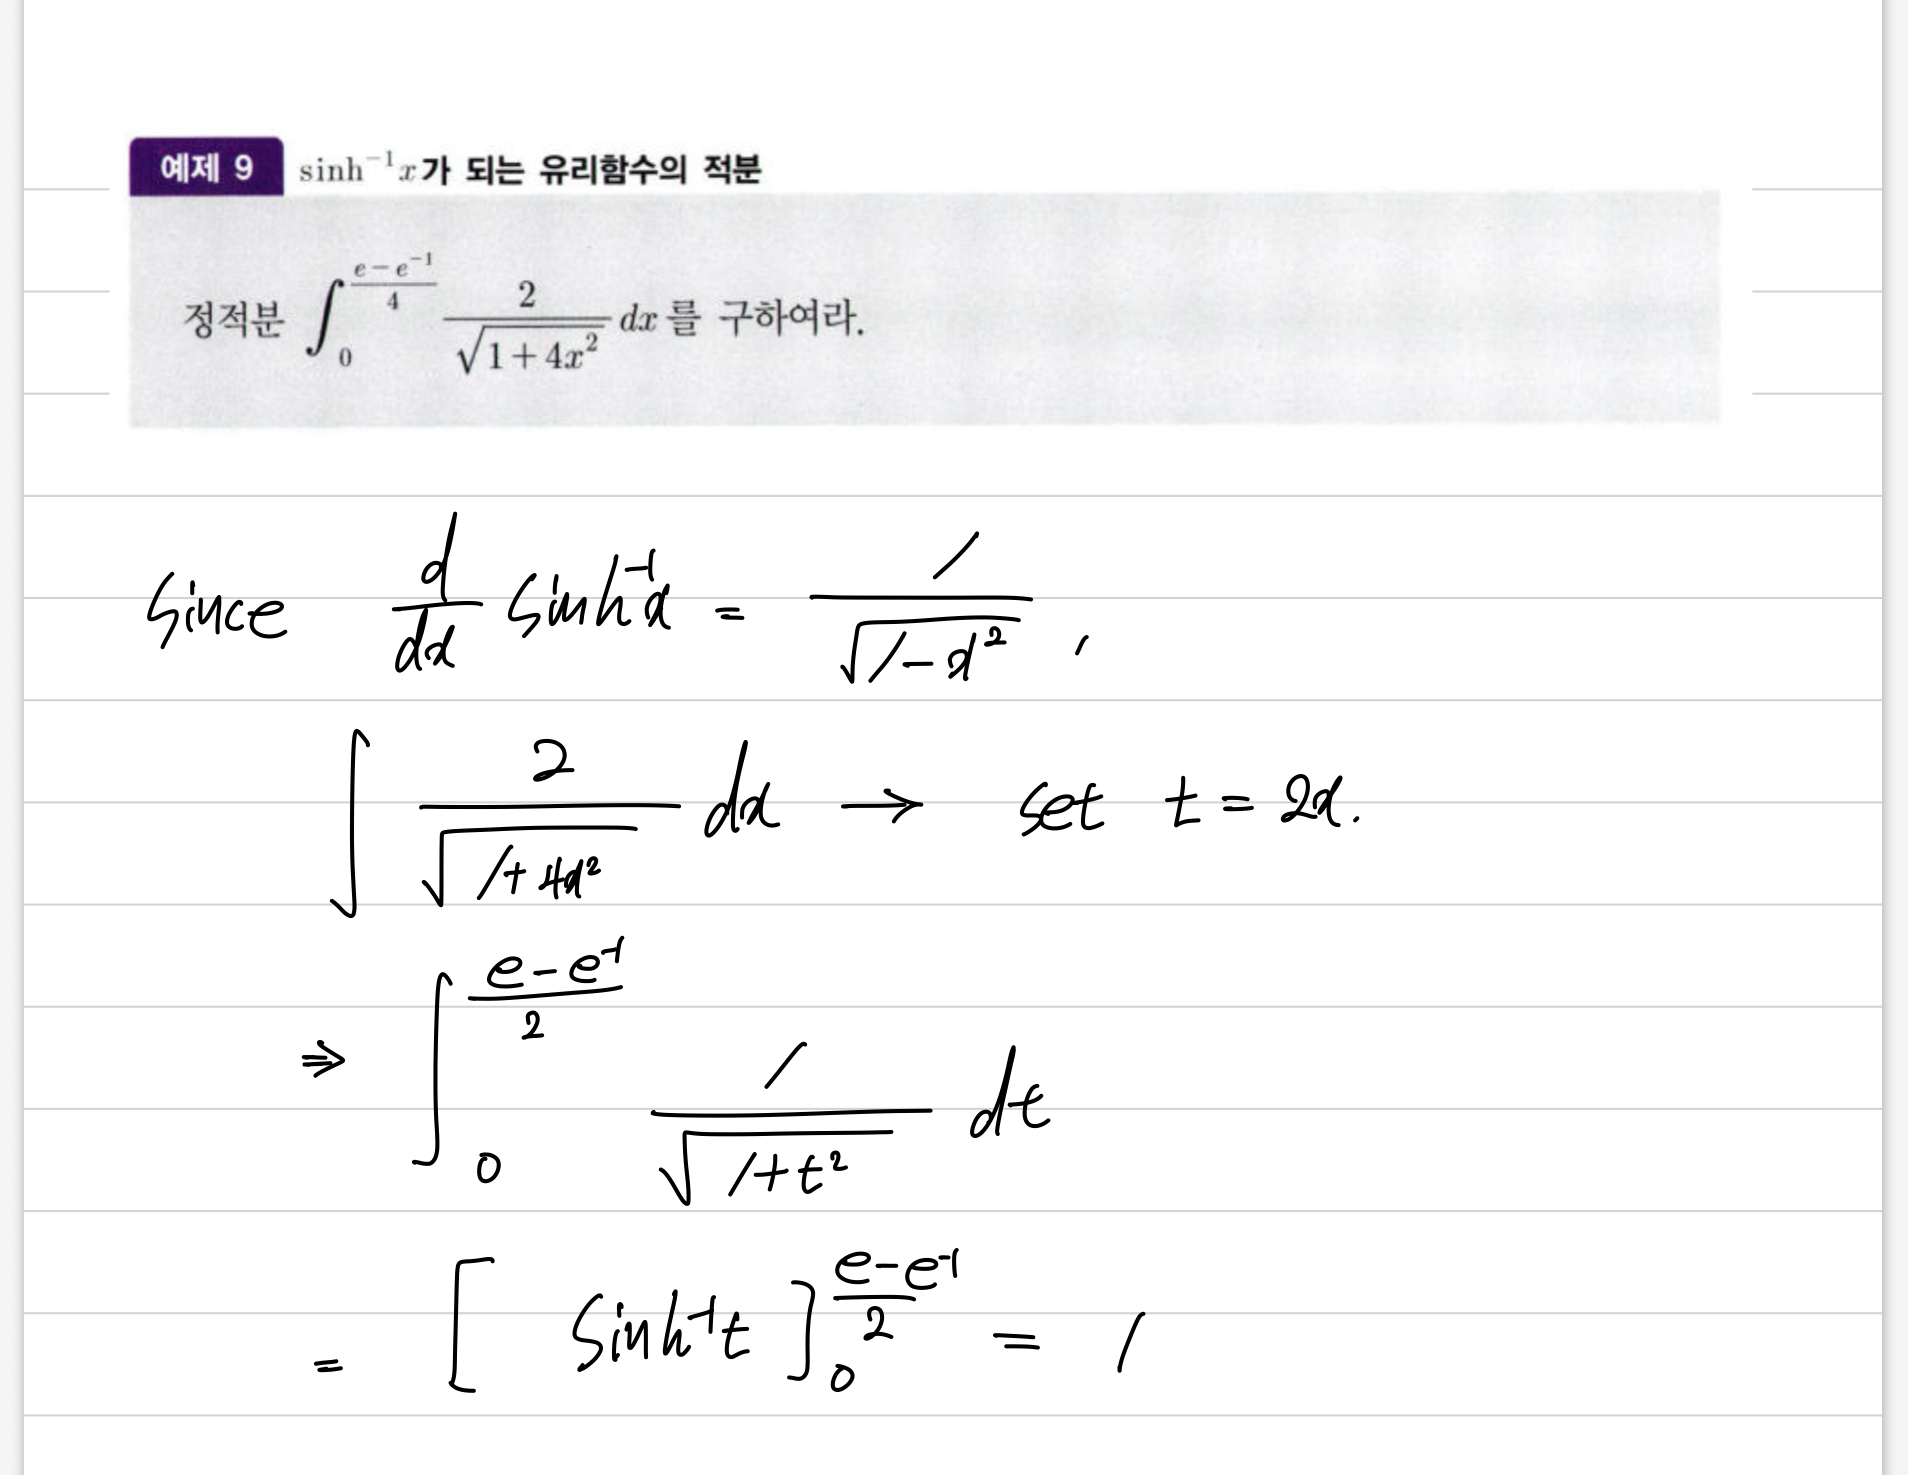 예제 9 sinh⁻¹x가 되는 유리함수의 적분
정적분 ∫₀^((e-e⁻¹)/4) 2/√(1+4x²) dx를 구하여라.
Since d/dx sinh⁻¹x = 1/√(1-x²) ,
∫ 2/√(1+4x²) dx → set t = 2x.
⇒ ∫₀^((e-e⁻¹)/2) 1/√(1+t²) dt
= [ sinh⁻¹t ]₀^((e-e⁻¹)/2) = 1